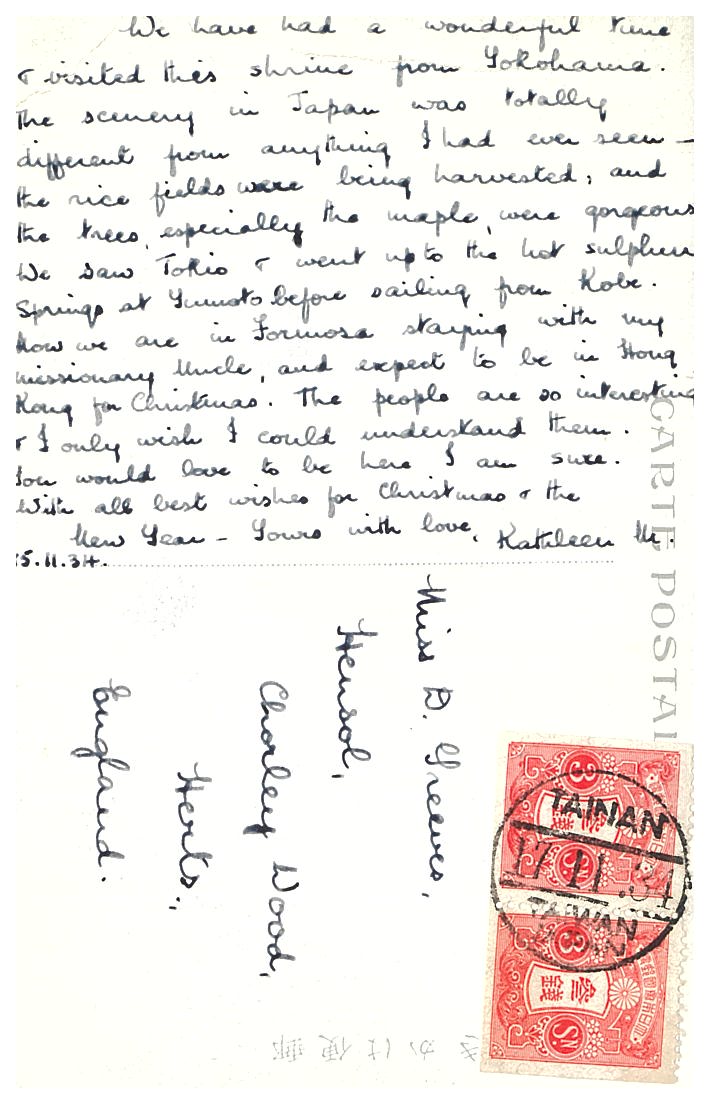 We have had a wonderful time
& visited this shrine from Yokohama.
The scenery in Japan was totally
different from anything I had ever seen —
the rice fields were being harvested; and
the trees, especially the maple, were gorgeous
We saw Tokio & went up to the hot sulphur
Springs at Yumoto before sailing from Kobe.
Now we are in Formosa staying with my
missionary Uncle, and expect to be in Hong
Kong for Christmas. The people are so interesting
& I only wish I could understand them.
You would love to be here I am sure.
With all best wishes for Christmas & the
New Year – Yours with love, Kathleen M.
15.11.34.
CARTE POSTAL
Miss D. Greeves,
Hensol,
Chorley Wood,
Herts.,
England.
3
叁錢
3 Sn.
大日本帝國郵便
TAINAN
17.11.34
TAIWAN
3
叁錢
3 Sn.
大日本帝國郵便
郵便はがき